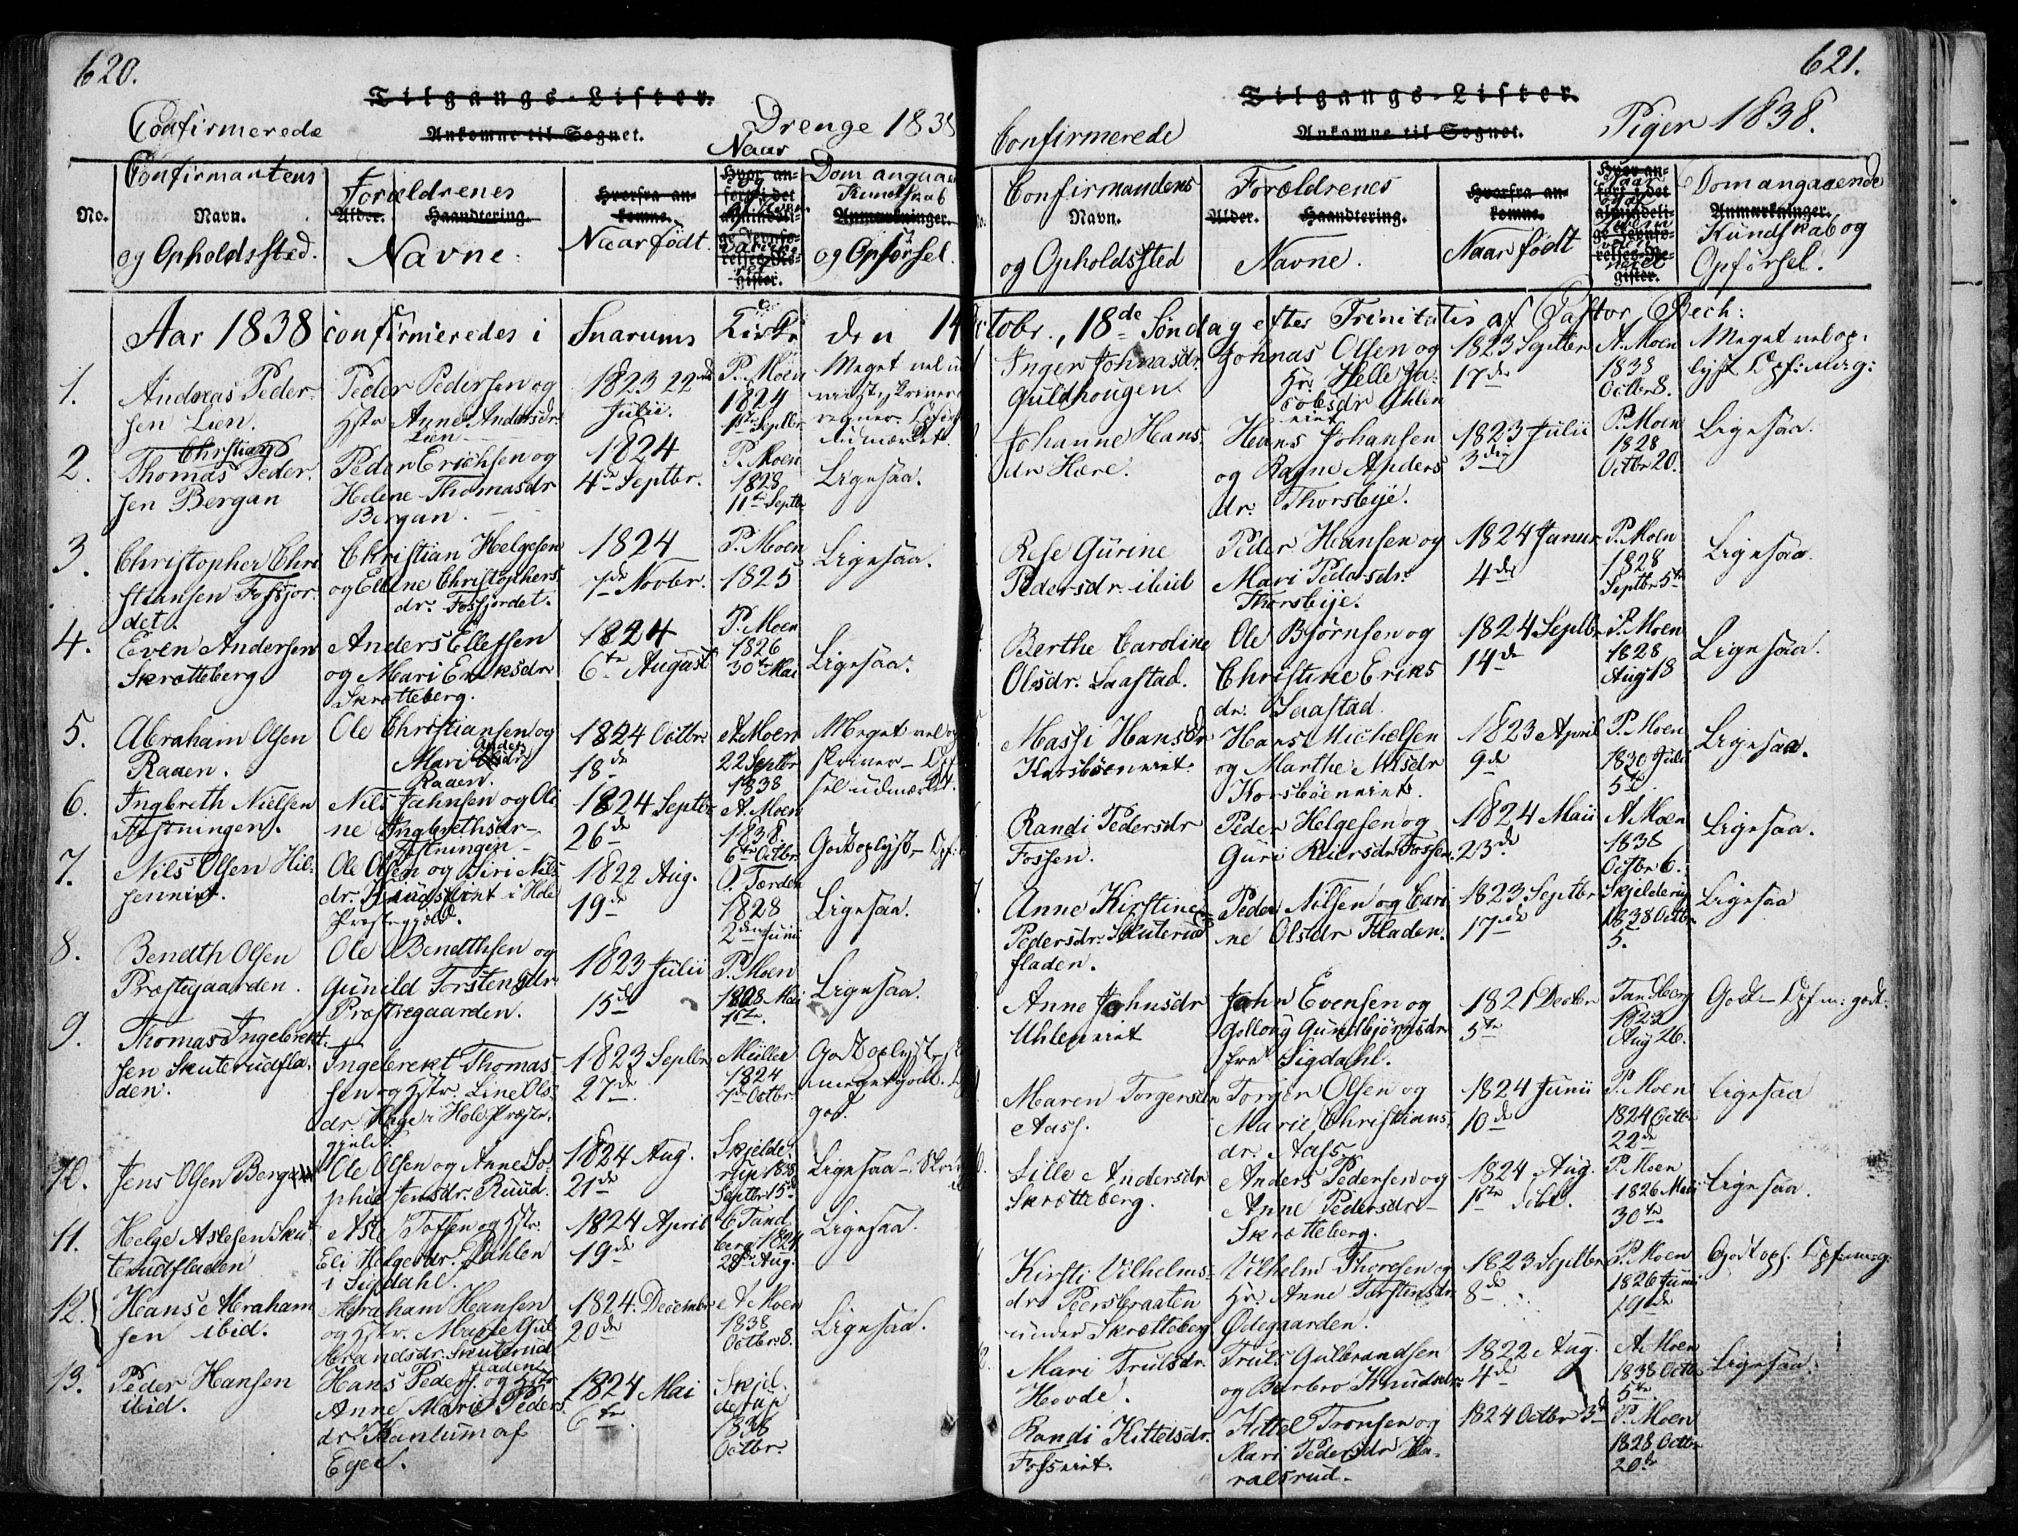 620.
Tilgangs-Lister.
Confirmerede
Ankomne til Sognet.
Drenge 1838
No.
Confirmantens
Navn.
og Opholdssted.
Forældrenes
Alder. Haandtering.
Navne.
Hvorfra an-
komne.
Naar født.
Naar
Dom angaaen
Kundskab
Anmærkninger.
og Opførsel.
Aar 1838 confirmeredes i Snarums Kirke den 14
1.
Andreas Peder-
sen Lien.
Peder Pedersen og
Hstr Anne Andersdr
Lien
1823 22
Julii.
P. Moen
1824
1ste Septbr
Meget vel
2.
Christian
Thomas Peder-
sen Bergan
Peder Erichsen og
Helene Thomasdr
Bergan.
1824
4de Septbr.
P. Moen
1828
11te Septbr
Ligesaa.
3.
Christopher Chri
stiansen Fossjor-
det.
Christian Helgesen
og Ellene Christophers
dr. Fossjordet.
1824
1de Novbr.
P. Moen
1825
Ligesaa.
4.
Even Andersen
Skrætteberg
Anders Ellefsen
og Mari Eriksdr
Skrætteberg.
1824
6te August
P. Moen
1826
30te Mai
Ligesaa.
5.
Abraham Olsen
Raaen.
Ole Christiansen og
Mari Anders
dr
Raaen.
1824 Octbr.
18de
A. Moen
22 Septbr
1838
Meget vel
skriver
sel udmærket.
6.
Ingbreth Nielsen
Fæstningen.
Nils Jahnsen og Oli
ne Ingbrethsdr
Fæstningen
1824 Septbr
26de
A. Moen
1838
6te Octbr.
Godt oplyst
7.
Nils Olsen Hil-
seneiet.
Ole Olsen og Siri Nils-
dr. i Hole
Præstegjeld.
1822 Aug.
19de
1828
2den Junii
Ligesaa.
8.
Bendth Olsen
Præstegaarden.
Ole Bendthsen og
Gunild Torstensdr.
Præstegaarden.
1823 Julii
15de
P. Moen
1828 Mai
1ste.
Ligesaa.
9.
Thomas Ingebrekt-
sen Skuterudfla-
den.
Ingebrekt Thomas-
sen og Hstr. Line Ols-
dr. i Hole Præste-
gjeld.
1823 Septbr
27de
Müller
1824
7de Octbr.
Godt oplyst
meget godt.
10.
Jens Olsen Bergan
Ole Olsen og Anne So-
phie Jensdr. Ruud.
1824 Aug.
21de
Skjelde-
rup 1828
Septbr 15de
Ligesaa
11.
Helge Aslesen Sku-
terudfladen
Asle Tofsen og Hstr.
Eli Helgesdr.
i Sigdahl.
1824 April
19de
C Tand
berg 1824
28de Aug.
Ligesaa.
12.
Hans Abraham
sen ibid.
Abraham Hansen
og Hstr. Marie Gul
brandsdr. Skuterud
fladen
1824. Decembr
20de
A Moen
1838
Octbr 8.
Ligesaa.
13.
Peder Hansen
ibid.
Hans Peders. og Hstr
Anne Marie Peders
dr. af
Eger.
1824 Mai
6te
Skjel-
derup
1836
Octbr.
621.
Tilgangs-Lister.
Confirmerede
Ankomne til Sognet.
Piger 1838.
Confirmandens
Navn.
og Opholdssted
Forældrenes
Alder. Haandtering.
Navne.
Hvorfra an-
komne.
Naar født
Dom angaaende
Anmærkninger.
Kundskab og
Opførsel.
October, 18de Søndag efter Trinitatis af Pastor Bech:
Inger Johnasdr.
Guldhougen.
Johnas Olsen og
Hr. Helle Ja-
cobsdr Uhlen
eiet
1823 Septbr
17de
A. Moen
1838
Octbr 8.
Meget vel op-
lyst Opf: m: g:
Johanne Hans-
dr. Hære.
Hans Johansen
og Ragne Anders
dr: Thorsbye.
1823 Julii
3die
P. Moen
1828
Octbr 20.
Ligesaa.
Rese Gurine
Pedersdr. ibid
Peder Hansen og
Mari Pedersdr.
Thorsbye.
1824 Janur
4de
P. Moen
1828
Septbr 5te
Ligesaa.
Berthe Caroline
Olsdr. Saastad.
Ole Bjørnsen og
Christine Eriks
dr. Saastad.
1824 Septbr
14de
P. Moen
1828
Aug 18
Ligesaa.
Massi Hansdr
Korsbøeneiet.
Hans Michelsen
og Marthe Nilsdr
Korsbøeneiet.
1823 April
9de
P. Moen
1830 Juli
5te.
Ligesaa.
Randi Pedersdr
Fossen.
Peder Helgesen og
Guri Reiersdr Fossen.
1824 Maii
23de
A Moen
1838
Octbr 6.
Ligesaa.
Anne Kirstine
Pedersdr. Skuterud
fladen.
Peder Nilsen og Cari
ne Olsdr Fladen.
1823 Septbr
17de
Skjelderup
1838 Octbr
5.
Ligesaa
Anne Johnsdr
Uhleneiet
John Evensen og
Gollovg Gundbjørnsdr.
fra Sigdahl.
1821 Decbr
5te
Tandberg
1823
Aug 26.
Godt Opf m: godt.
Maren Torgersdr
Aass.
Torger Olsen og
Marie Christians-
dr. Aass.
1824 Junii
10de
P. Moen
1824 Octbr
22de
Ligesaa
Lille Andersdr
Skrætteberg.
Anders Pedersen og
Anne Pedersdr
Skrætteberg.
1824 Aug.
1ste
P. Moen
1826 Maii
30te
Ligesaa.
Kirsti Vilhelms-
dr. Peersbraaten
under Skrætteberg
Vilhelm Thoresen og
Hr. Anne Torstensdr
Ødegaarden.
1823 Septbr
8de
P. Moen
1826 Junii
19de
Godt opl. Opf: m: g:
Mari Trulsdr.
Hovde.
Truls Gulbrandsen
og Barbro Knudsdr.
1822 Aug.
4de
A Moen
1838 Octbr
5te
Ligesaa.
Randi Kittelsdr.
Fosseiet.
Kittel Tronsen og
Mari Pedersdr Ha-
ralsrud.
1824 Octbr 3de
P. Moen
1828 Octbr
20de